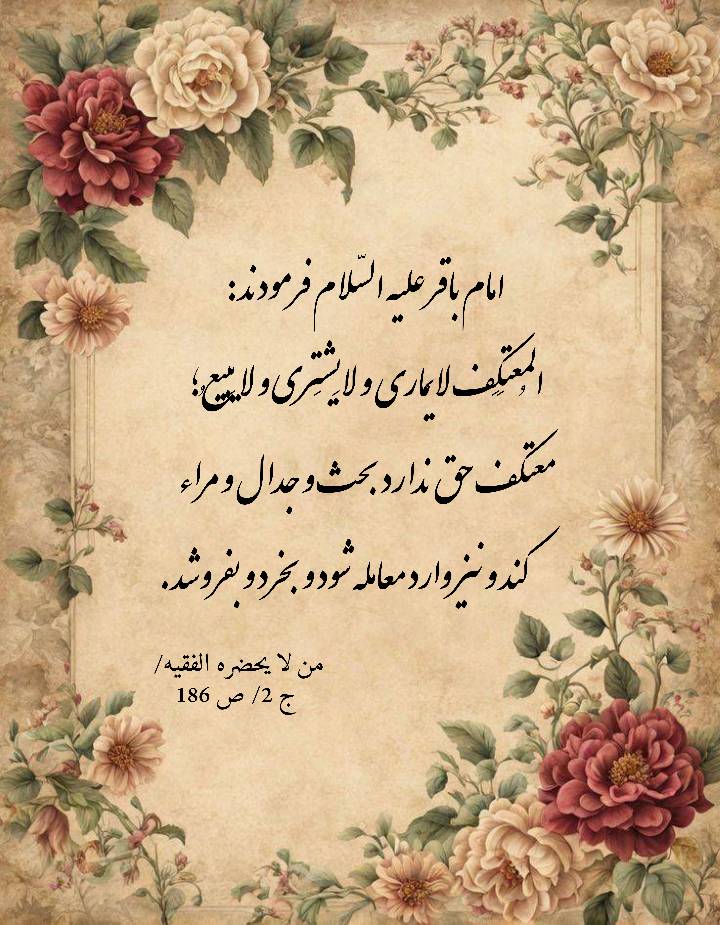 امام باقر علیه السّلام فرمودند:
المُعتَکِف لا یماری و لا یَشتَری و لا یَبیعُ؛
معتکف حق ندارد بحث و جدال و مراء
کند و نیز وارد معامله شود و بخرد و بفروشد.
من لا یحضره الفقیه/
ج 2/ ص 186